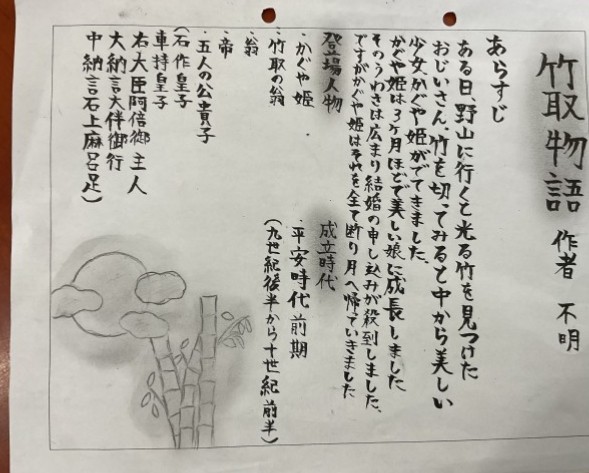 竹取物語 作者 不明
あらすじ
ある日、野山に行くと光る竹を見つけた
おじいさん。竹を切ってみると中から美しい
少女、かぐや姫がでてきました。
かぐや姫は3ヶ月ほどで美しい娘に成長しました
そのうわさは広まり結婚の申し込みが殺到しました。
ですがかぐや姫はそれを全て断り月へ帰っていきました
登場人物
・かぐや姫
・竹取の翁
・翁
・帝
・五人の公貴子
(石作皇子
車持皇子
右大臣阿倍御主人
大納言大伴御行
中納言石上麻呂足)
成立時代
・平安時代前期
(九世紀後半から十世紀前半)